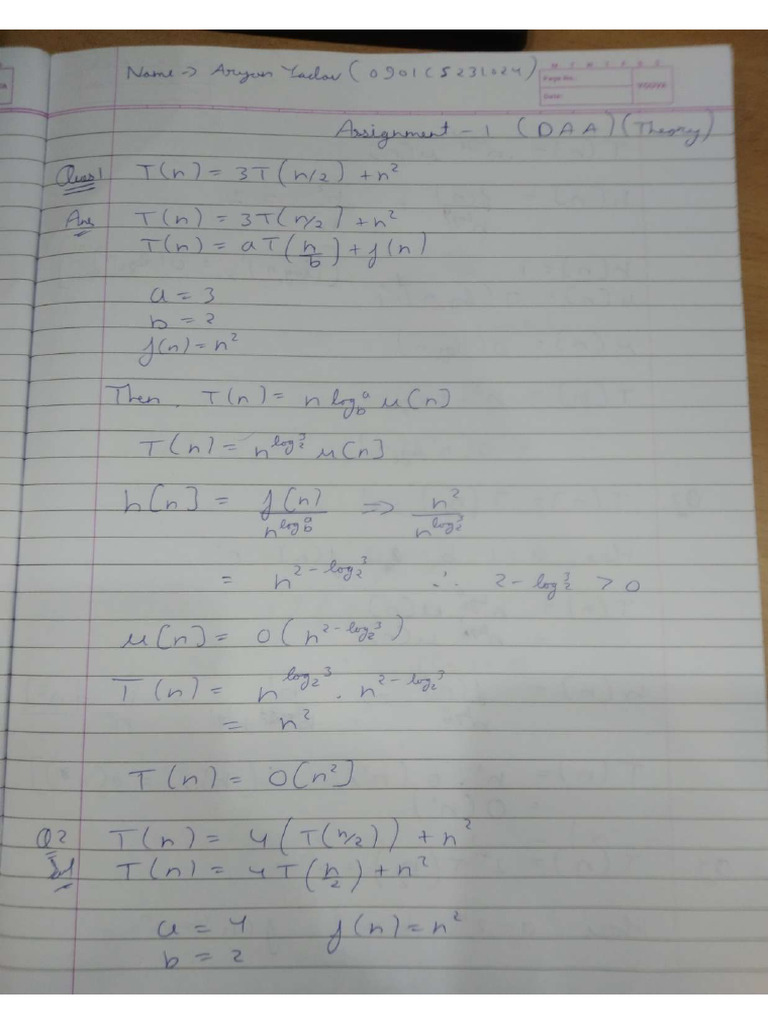 Name → Aryan Yadav (0901CS231024)
Page No.
Date:
Assignment - 1 (DAA) (Theory)
Ques 1 T(n) = 3T(n/2) + n²
Ans T(n) = 3T(n/2) + n²
T(n) = aT(n/b) + f(n)
a = 3
b = 2
f(n) = n²
Then, T(n) = n log_b^a u(n)
T(n) = n^(log_2^3) u(n)
h(n) = f(n)/n^(log_b^a) ⇒ n²/n^(log_2^3)
= n^(2 - log_2^3) ∴ 2 - log_2^3 > 0
u(n) = O(n^(2 - log_2^3))
T(n) = n^(log_2^3) . n^(2 - log_2^3)
= n²
T(n) = O(n²)
Q2 T(n) = 4(T(n/2)) + n²
Sol T(n) = 4T(n/2) + n²
a = 4 f(n) = n²
b = 2